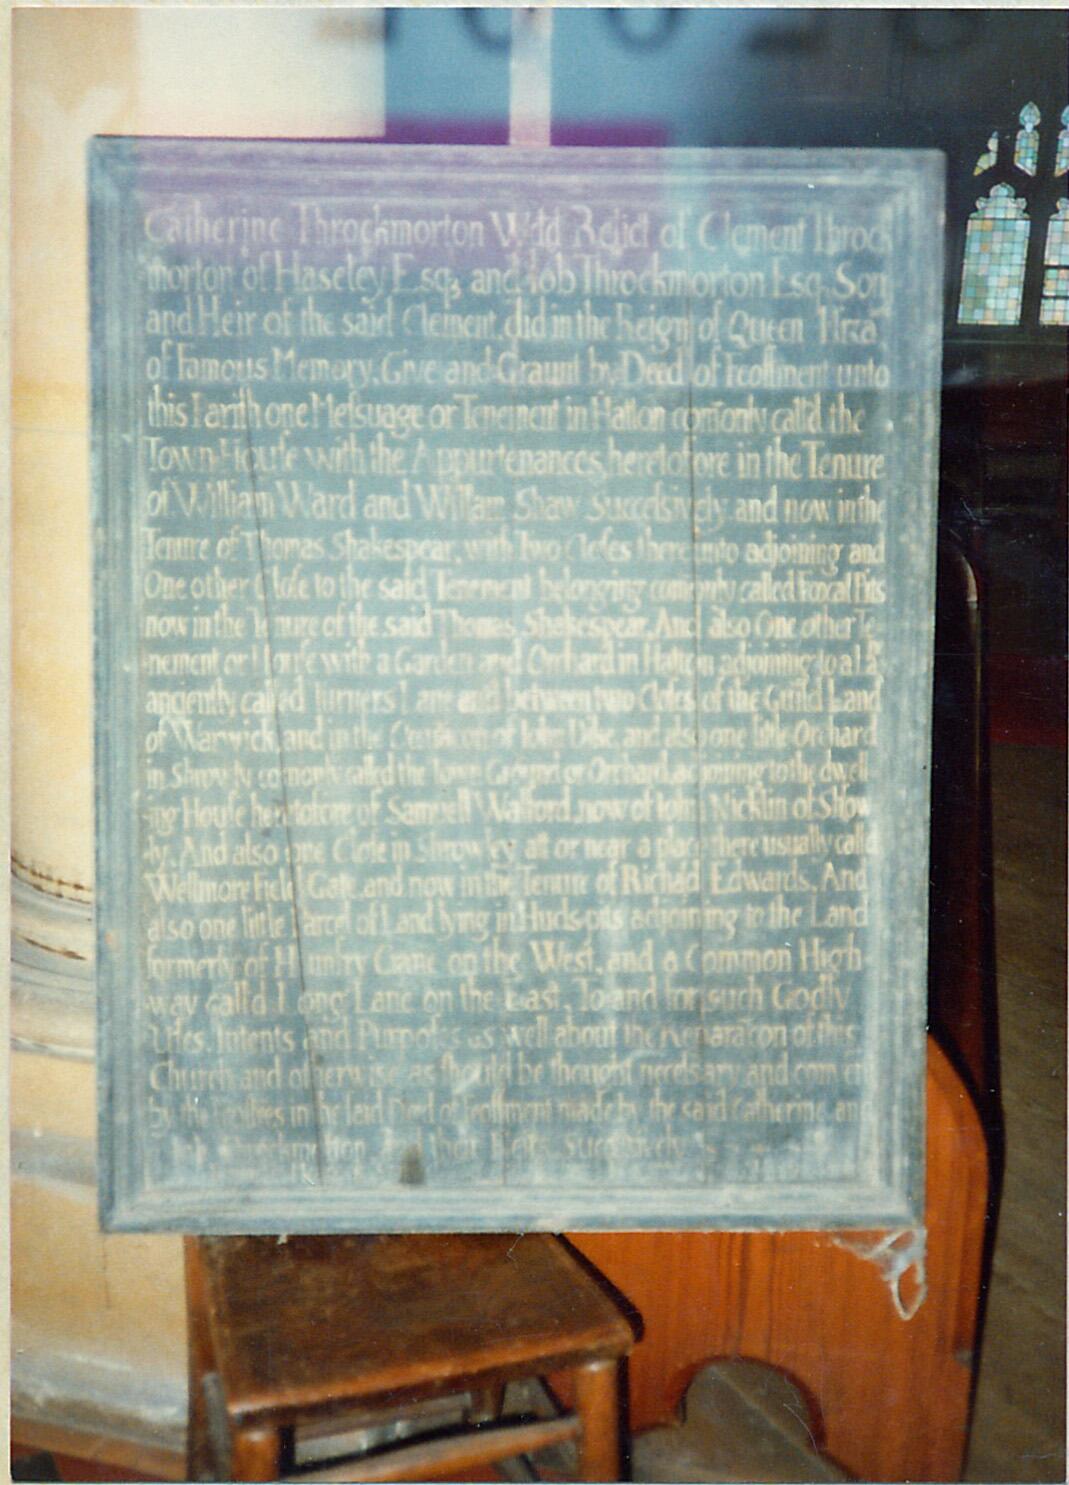 Catherine Throckmorton Wdd Relict of Clement Throck
morton of Haseley Esqs and Job Throckmorton Esq. Son
and Heir of the said Clement, did in the Reign of Queen
of Famous Memory, Give and Graunt by Deed of Feoffment unto
this Parish one Meſsuage or Tenement in Hatton com̄only call'd the
Town-Houſe with the Appurtenances, heretofore in the Tenure
of William Ward and William Shaw Succeſsively and now in the
Tenure of Thomas Shakespear, with Two Cloſes thereunto adjoining and
One other Cloſe to the said Tenement belonging com̄only called Foxcal Pits
now in the Tenure of the said Thomas Shakespear. And also One other Te-
nement or Houſe with a Garden and Orchard in Hatton adjoining to a
anciently called Turners Lane and between two Cloſes of the Guild Land
of Warwick, and in the of John and also one little Orchard
in Shrowly com̄only called the Town Ground or Orchard, adjoining to the dwell-
ing Houſe heretofore of Samuell Walford, now of John Nicklin of Shrow-
-ly. And also one Cloſe in Shrowley at or near a place there usually call'd
Wellmore Field Gate, and now in the Tenure of Richad Edwards. And
also one little Parcel of Land lying in adjoining to the Land
formerly of Humfry Crane on the West, and a Common High
way call'd Long Lane on the East, To and for such Godly
Uſes, Intents and Purpoſes as well about the Reparac̄on of this
Church and otherwise as ſhould be thought needsary and
by the Feoffees in the said Deed of Feoffment made by the said Catherine an
Job Throckmorton And their Heirs Successively